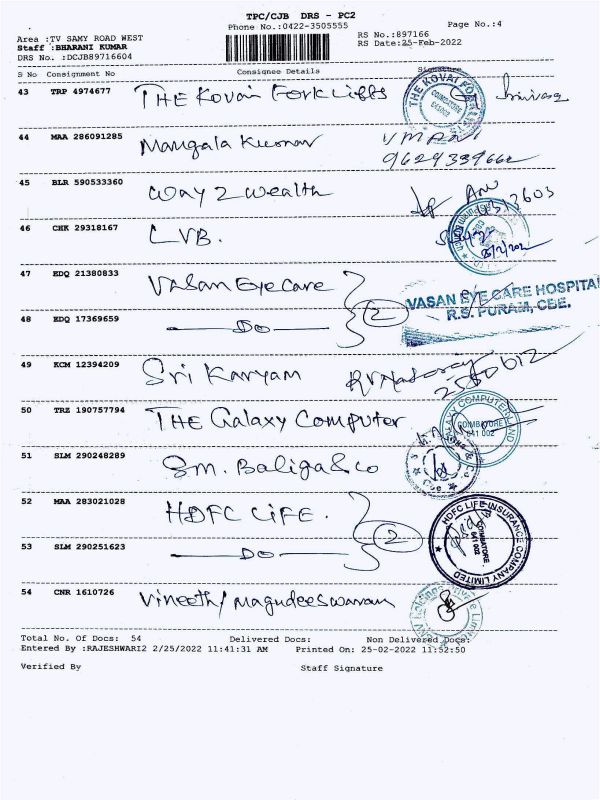 TPC/CJB DRS - PC2
Phone No.:0422-3505555
Page No.:4
Area :TV SAMY ROAD WEST
RS No.:897166
Staff :BHARANI KUMAR
RS Date:25-Feb-2022
DRS No. :DCJB89716604
S No Consignment No Consignee Details Signature
43 TRP 4974677 THE Kovai Forklifts
THE KOVAI
44 MAA 286091285 Mangala Kumar VMANI
9629339662
45 BLR 590533360 Way 2 Wealth
46 CHK 29318167 LVB.
47 EDQ 21380833 Vasan Eye Care
2
VASAN EYE CARE HOSPITAL
R.S. PURAM, CBE.
48 EDQ 17369659 Do
49 KCM 12394209 Sri Karyam
50 TRZ 190757794 THE Galaxy Computer
GALAXY COMPUTERLAND
COIMBATORE
641 002
51 SLM 290248289 Sm. Baliga & Co
52 MAA 283021028 HDFC LIFE.
2
HDFC LIFE INSURANCE COMPANY LIMITED
COIMBATORE
641 002
53 SLM 290251623 Do
54 CNR 1610726 Vineeth / Magudeeswaran
Total No. Of Docs: 54 Delivered Docs: Non Delivered Docs:
Entered By :RAJESHWARI2 2/25/2022 11:41:31 AM Printed On: 25-02-2022 11:52:50
Verified By Staff Signature